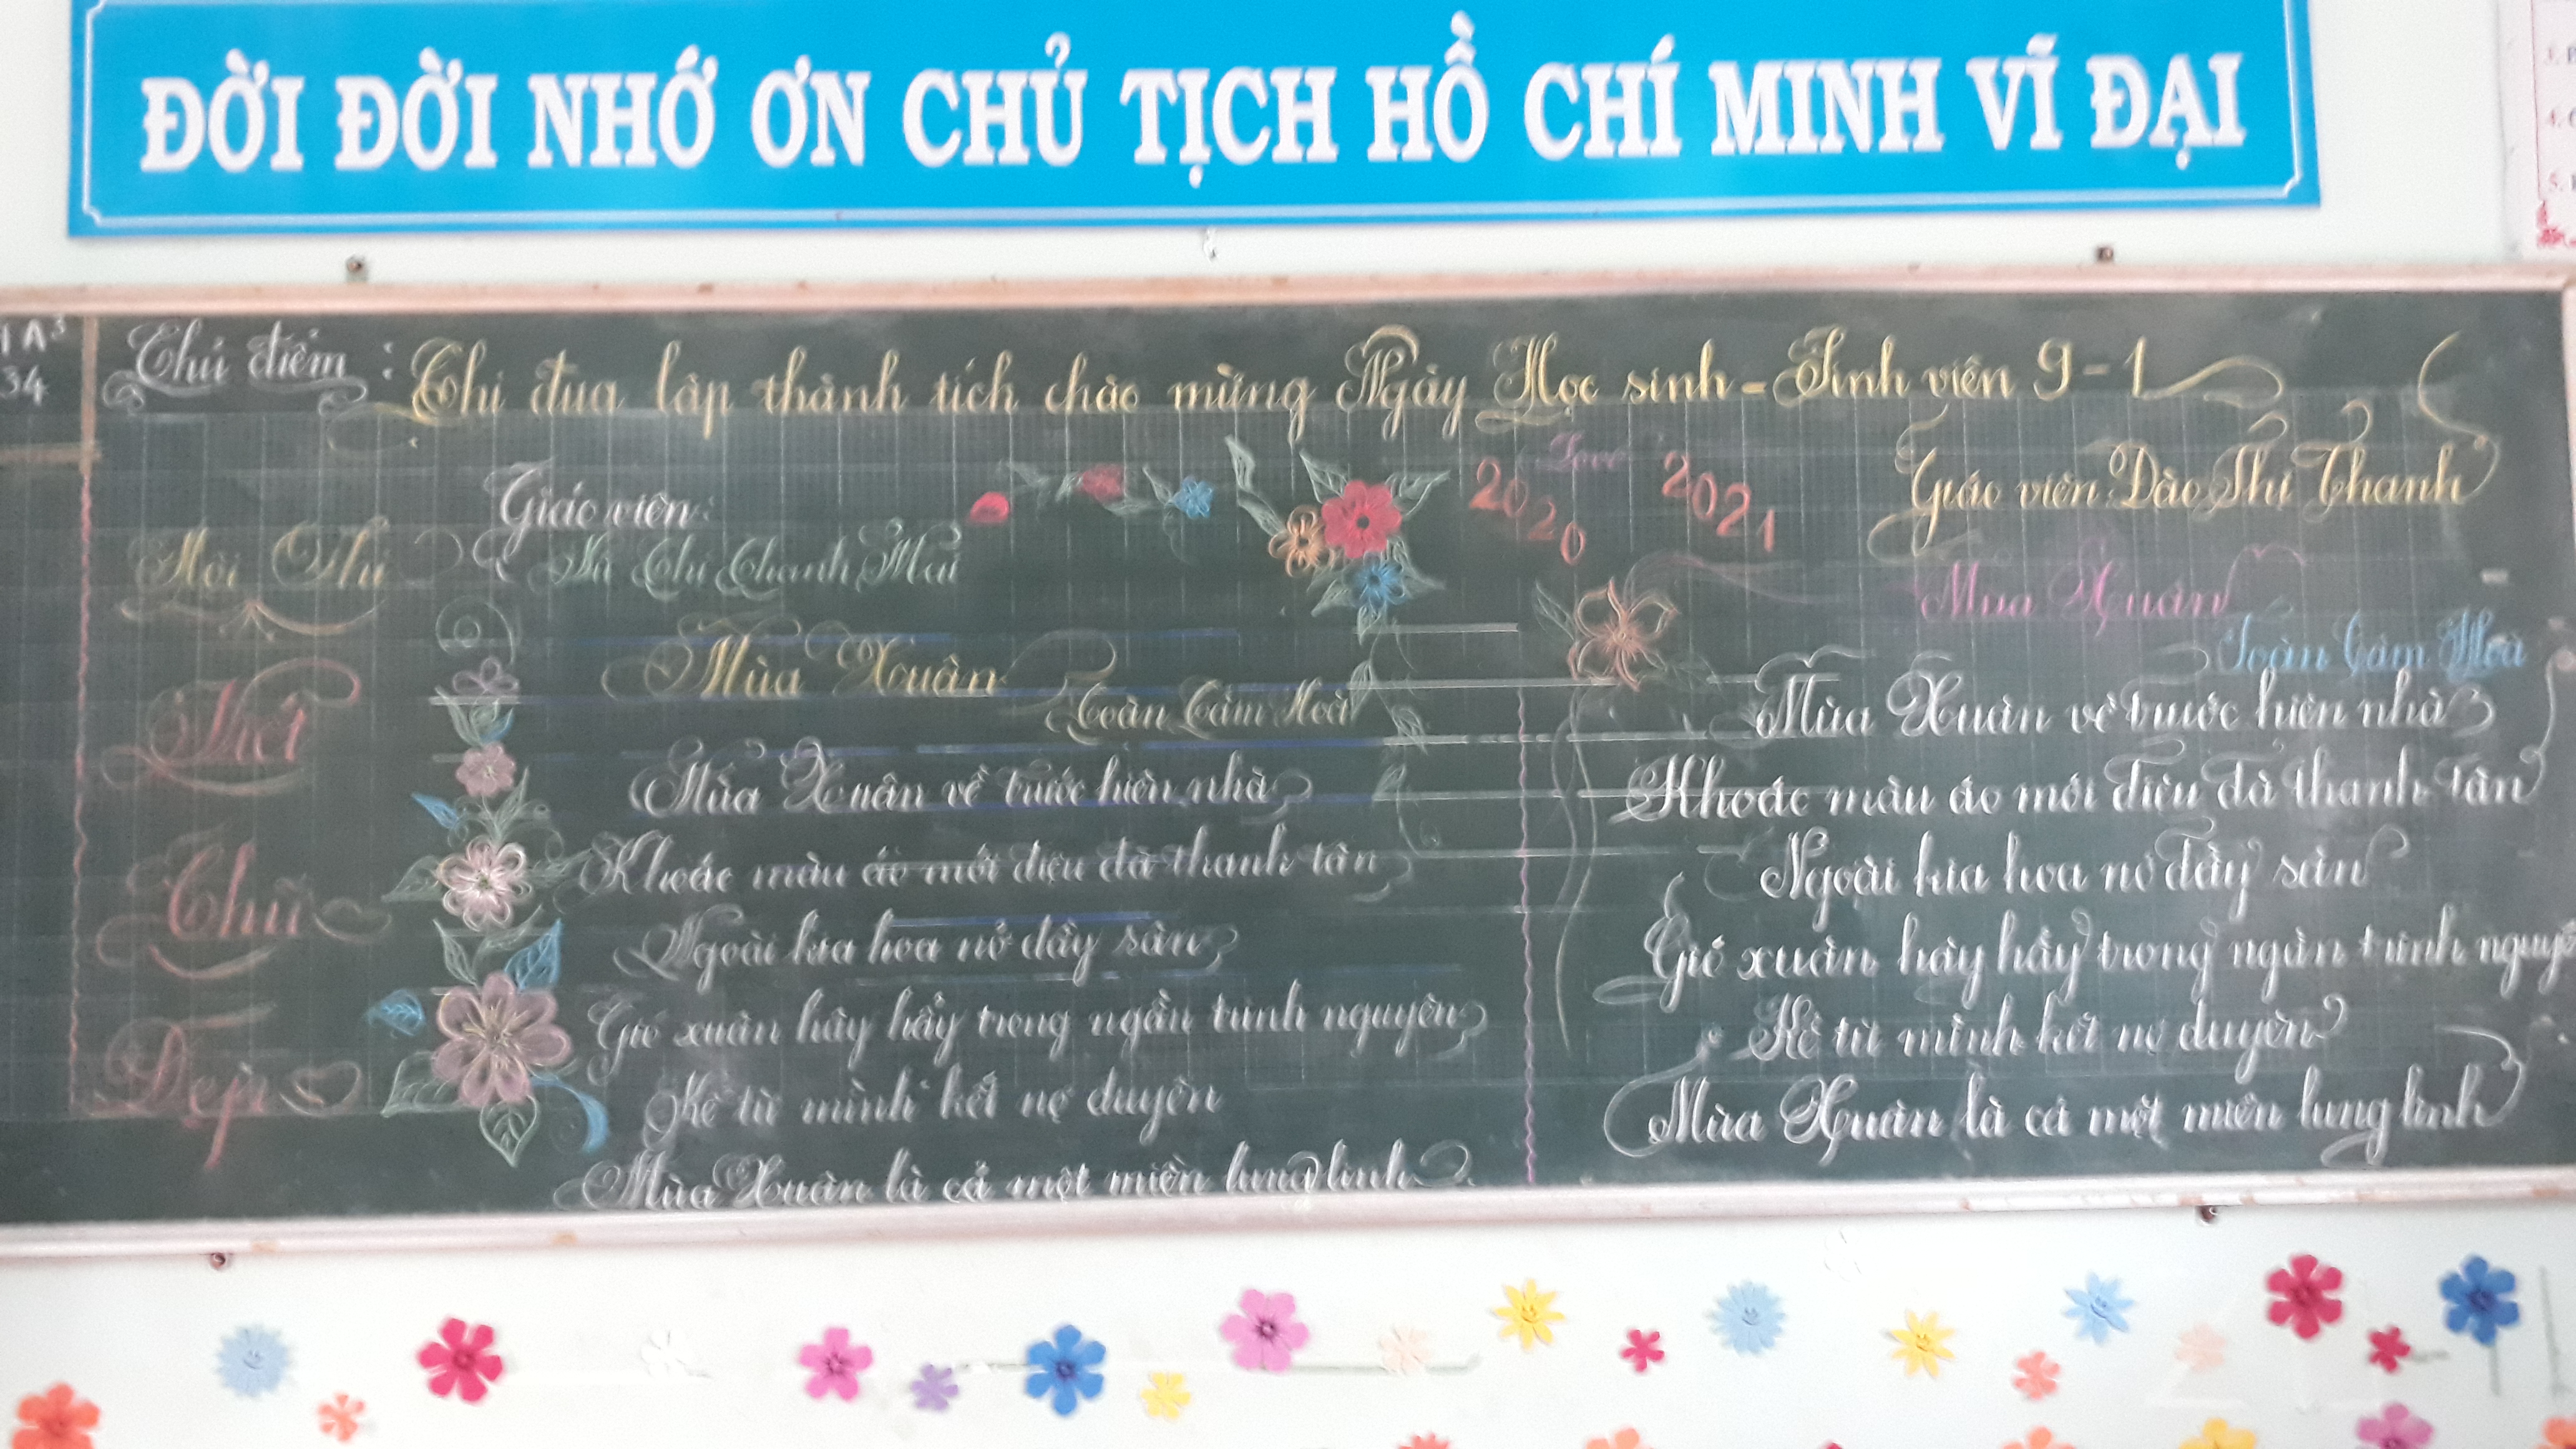 ĐỜI ĐỜI NHỚ ƠN CHỦ TỊCH HỒ CHÍ MINH VĨ ĐẠI
1A3
34
Chủ điểm : Thi đua lập thành tích chào mừng Ngày Học sinh - Sinh viên 9-1
Hội Thi
Viết
Chữ
Đẹp
Giáo viên:
Thị Thanh Mai
Mùa Xuân
Toàn Tâm Hoà
Mùa Xuân về trước hiên nhà
Khoác màu áo mới diệu đà thanh tân
Ngoài kia hoa nở đầy sân
Gió xuân hây hẩy trong ngần trinh nguyên
Kể từ mình kết nợ duyên
Mùa Xuân là cả một miền lung linh
2020 Love 2021
Giáo viên: Đào Thị Thanh
Mùa Xuân
Toàn Tâm Hoà
Mùa Xuân về trước hiên nhà
Khoác màu áo mới diệu đà thanh tân
Ngoài kia hoa nở đầy sân
Gió xuân hây hẩy trong ngần trinh nguyê
Kể từ mình kết nợ duyên
Mùa Xuân là cả một miền lung linh
3.
4.
5.